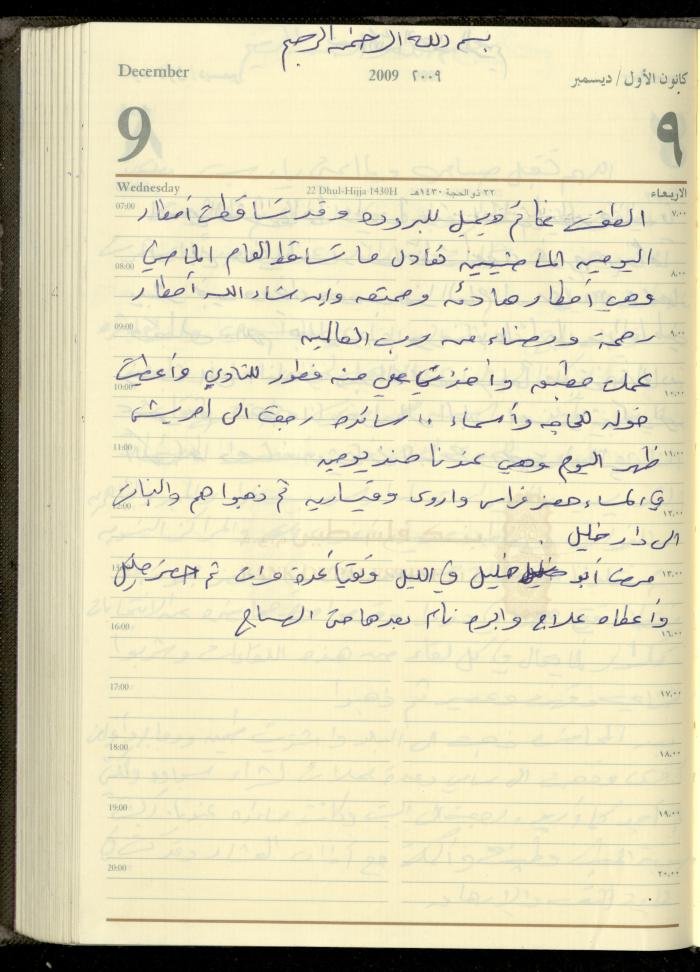 بسم الله الرحمن الرحيم
December 2009 ٢٠٠٩ كانون الأول / ديسمبر
9 ٩
Wednesday 22 Dhul-Hijja 1430H ٢٢ ذو الحجة ١٤٣٠هـ الاربعاء
07:00 ٧,٠٠
الطقس غائم ويميل للبروده وقد تساقطت أمطار
اليومين الماضيين تعادل ما تساقط العام الماضي
08:00 ٨,٠٠
وهي أمطار هادئه وممتعه وان شاء الله أمطار
09:00 ٩,٠٠
رحمة ورضاء من رب العالمين
عملت مطبقه وأخذ علي منه فطور للنادي وأعطيت
10:00 ١٠,٠٠
خوله للحاجه وأسماء ،، سائده رجعت الى
11:00 ١١,٠٠
ظهر اليوم وهي عندنا منذ يومين
في المساء حضر فراس واروى وقيساريه ثم ذهبوا هم والبنات
12:00 ١٢,٠٠
الى دار خليل .
13:00 ١٣,٠٠
مرض أبو خليل في الليل وتقيأ عدة مرات ثم حضر خليل
وأعطاه علاج وابره نام بعدها حتى الصباح
16:00 ١٦,٠٠
17:00 ١٧,٠٠
18:00 ١٨,٠٠
19:00 ١٩,٠٠
20:00 ٢٠,٠٠